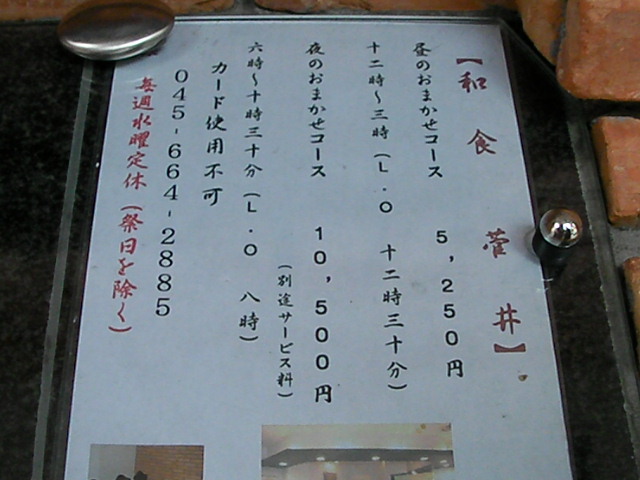 【和食 菅井】
昼のおまかせコース 5,250円
十二時〜三時(L.O 十二時三十分)
夜のおまかせコース 10,500円
(別途サービス料)
六時〜十時三十分(L.O 八時)
カード使用不可
045-664-2885
毎週水曜定休(祭日を除く)